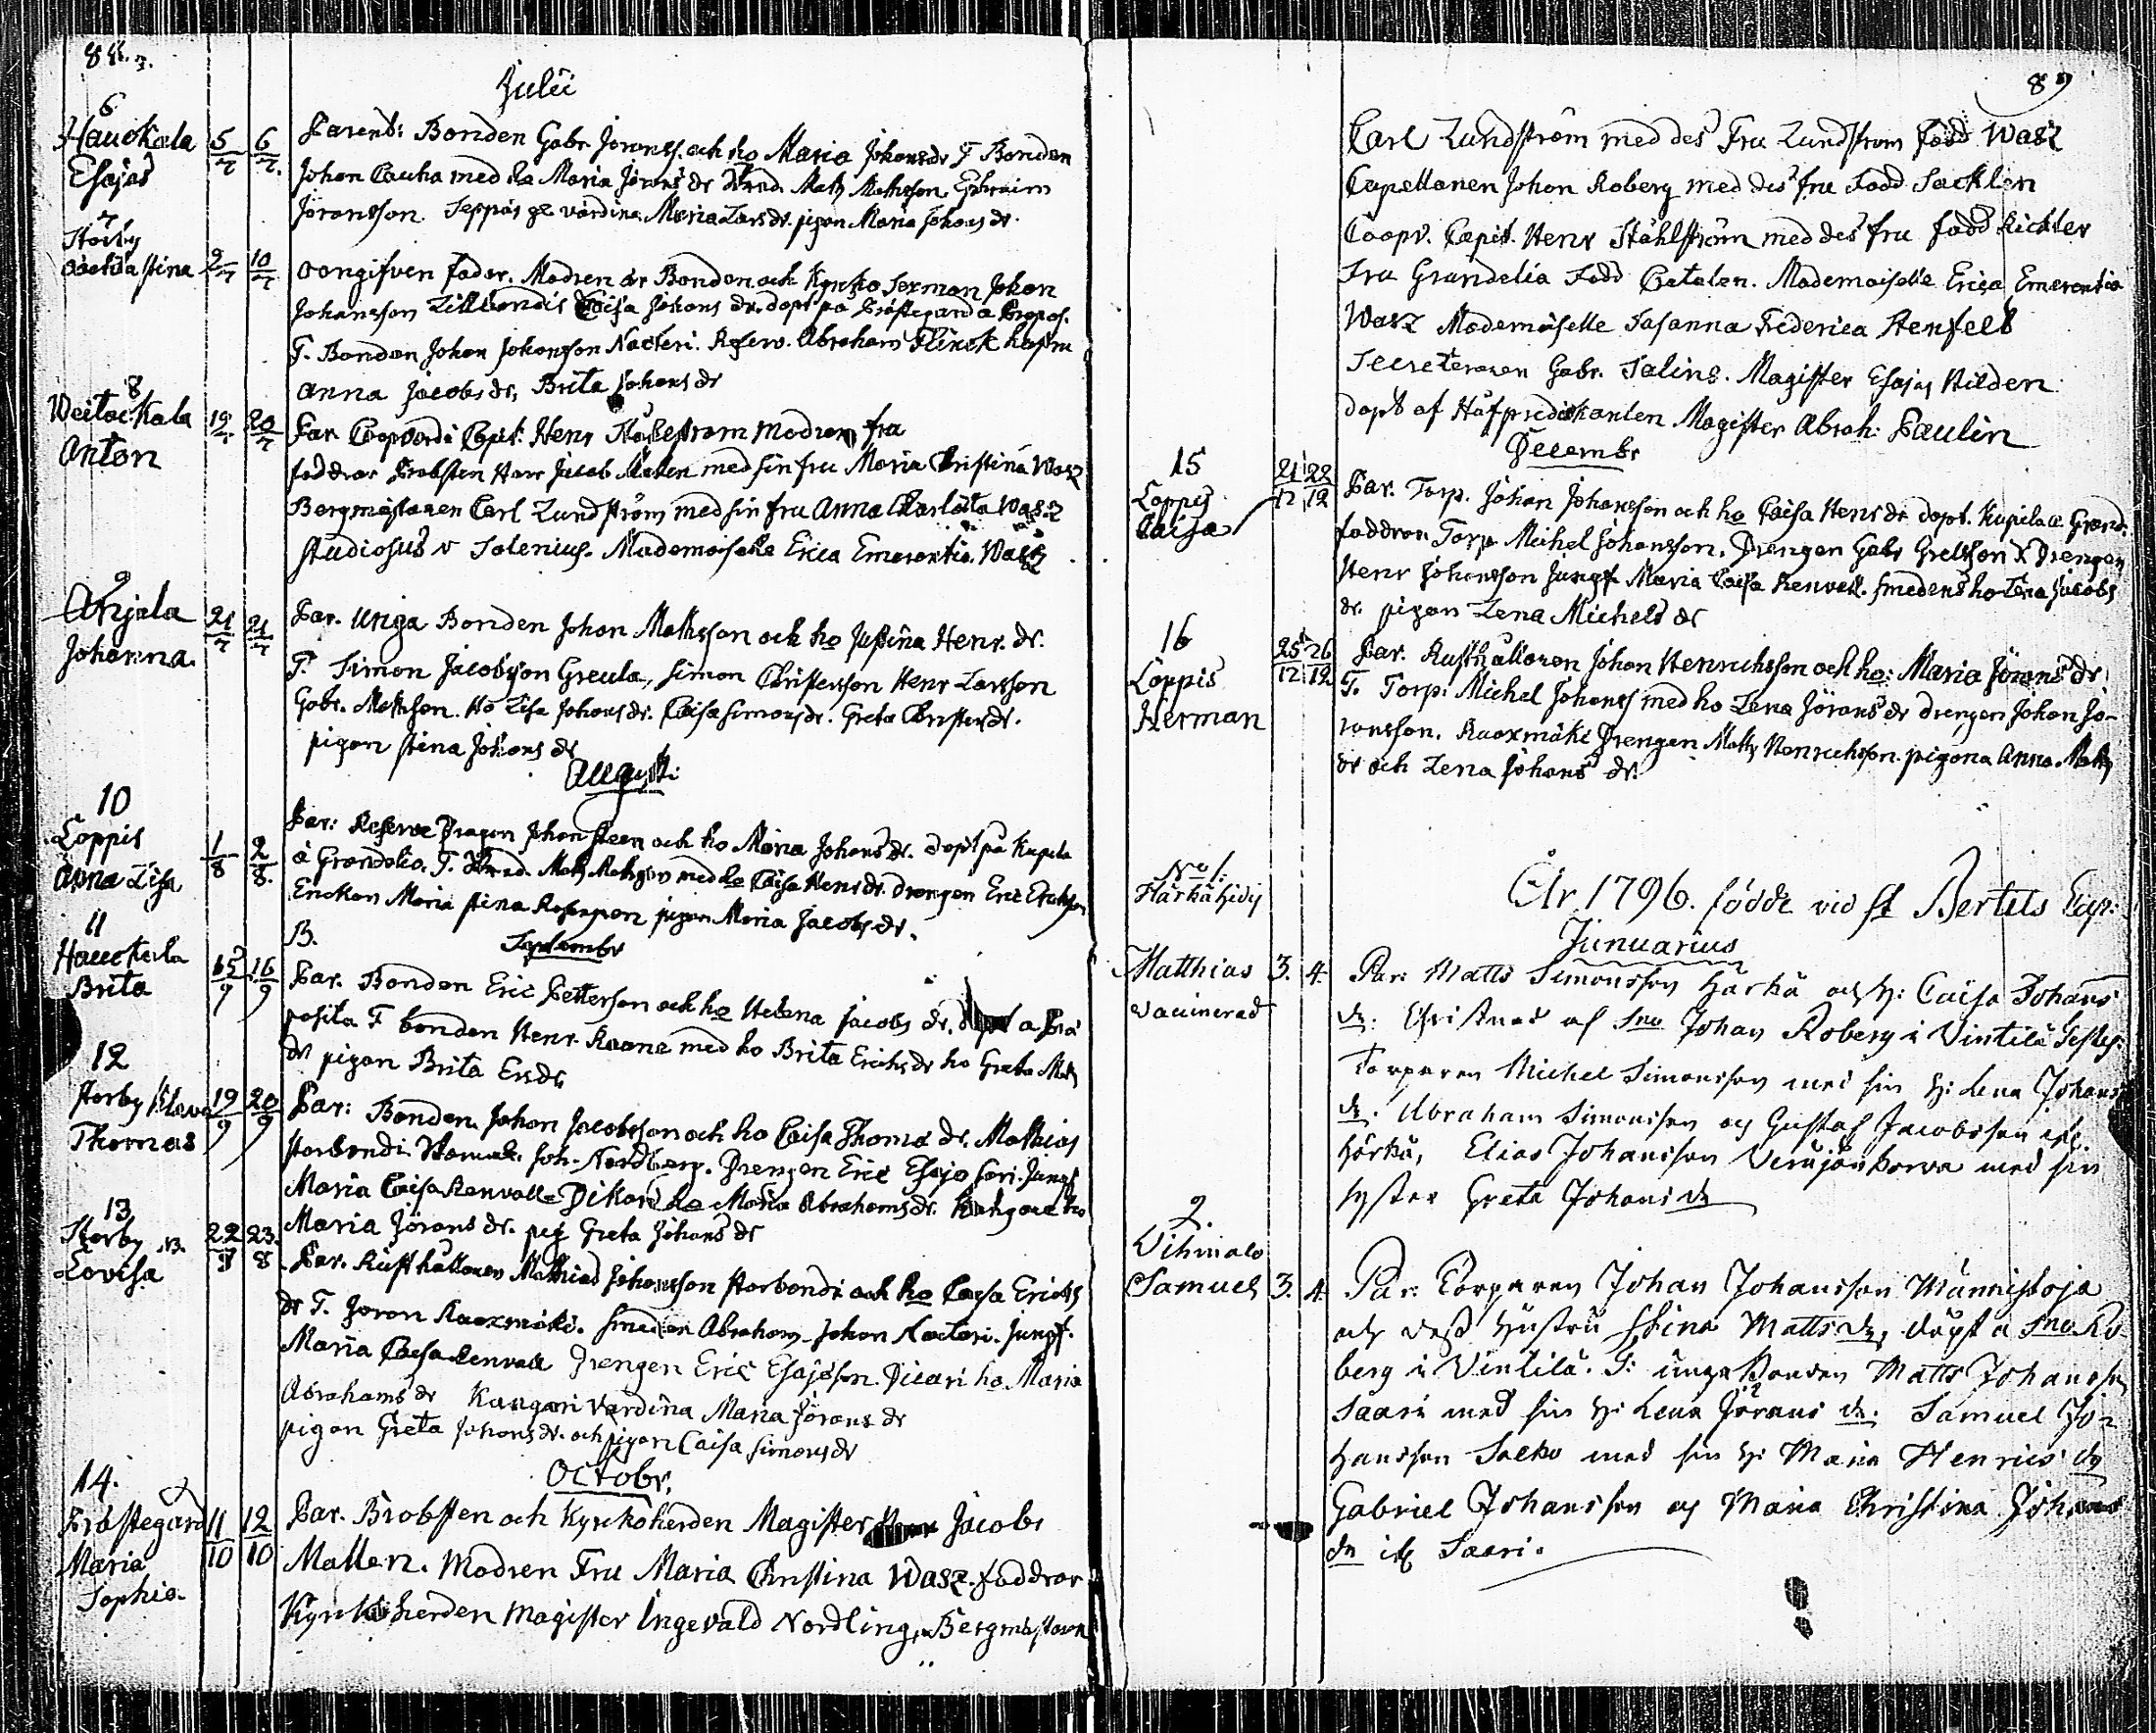 88.
Julii
6
Hauckala
Esajas
5/7 6/7
Parent: Bonden Gabr Joranss. och ho Maria Johansdr F Bonden
Johan Cauha med ho Maria Jörans dr Matts Mattsson. Ephraim
Jöransson. Seppäs värdina Maria Larsdr. pigan Maria Johansdr.
7
Storby
stina
9/7 10/7
oangifven fader. Modren är Bonden och Johan
Johansson Lillbondis Caisa Johans dr. döpt på Prästegård a Propos.
F. Bonden Johan Johansson Nacteri. Reserv. Abraham Flinck
Anna Jacobs dr, Brita Johans dr
8
Weitackala
Anton
19/7 20/7
Par Capit: Henr modren fru
faddrar Probsten Herr Jacob Mallen med sin fru Maria Christina Wasz
Bergmästaren Carl Lundström med sin fru Anna Charlotta Wasz
studiosus Salenius. Mademoiselle Erica Emerentia Wasz
9
Anjala
Johanna.
21/7 21/7
Par. Unga Bonden Johan Mattsson och ho Justina Henr. dr.
F. Simon Jacobsson Greula, Simon Christersson Henr Larsson
Gabr. Mattsson. Ho Lisa Johansdr. Caisa Simonsdr. Greta Christersdr.
pigan Stina Johans dr
Augusti
10
Loppis
Anna Lisa
1/8 2/8.
Par: Reserve Dragon Johan Steen och ho Maria Johans dr. döpt på Kupila
a Grandelio. F. Matts Mattsson med ho Caisa Henrs dr. Drengen Eric Ericksson
Maria Stina pigan Maria Jacobs dr.
B.
Septembr
11
Hauckala
Brita
15/9 16/9
Par. Bonden Eric Pettersson och ho Helena Jacobs dr. a Prä
posita F bonden Henr. med ho Brita Erichsdr ho Greta Matts
dr pigan Brita Ersdr
12
Storby
Thomas
19/9 20/9
Par: Bonden Johan Jacobsson och ho Caisa Thoma dr. Mathias
Storbondi Joh. Nordberg. Drengen Eric Esajs Jungf
Maria Caisa Renvall Dikari ho Maria Abrahams dr.
Maria Jörans dr. pig Greta Johans dr
13
Storby
Lovisa
22/9 23/8
Par. Rusthållaren Mathias Johansson Storbondi och ho Caisa Erichs
dr F. Joran smeden Abraham Johan Nacteri. Jungf.
Maria Caisa Renvall Drengen Eric Esajsson. Dicari ho Maria
Abrahams dr Kangari värdina Maria Jörans dr
pigan Greta Johans dr. och pigan Caisa Simons dr
Octobr.
14.
Prästegård
Maria
Sophia.
11/10 12/10
Par. Probsten och Kyrkoherden Magister Jacob
Mallen. Modren Fru Maria Christina Wasz. faddrar
Kyrkoherden Magister Ingevald Nordling, Bergmästaren
89
Carl Lundström med des Fru Lundström född Wasz
Capellanen Johan Roberg med des fru född Sacklen
Coopv. Capit. Henr Ståhlström med des fru född Richter
Fru Grandelia född Catalen. Mademoiselle Erica Emerentia
Wasz Mademoiselle Susanna Federica Stenfelt
Secreteraren Gabr. Salins. Magister Esajas Hilden
döpt af Håfpredikanten Magister Abrah: Paulin
Decembr
15
Loppis
Caisa
21/12 22/12
Par. Torp. Johan Johansson och ho Caisa Henrs dr döpt. Kupila a Grand.
faddrar. Torp Michel Johansson. Drengen Gabr Drengen
Henr Johansson Jungf. Maria Caisa Renvall. smedens ho Lena Jacobs
dr. pigan Lena Michels dr
16
Loppis
Herman
25/12 26/12
Par. Rusthållaren Johan Henrichsson och ho: Maria Jörans dr
F. Torp. Michel Johanss med ho Lena Jörans dr drengen Johan Jö-
ransson. Drengen Matts Henrichsson. pigona Anna Matts
dr och Lena Johans dr.
Åhr 1796. födde vid St Bertels Cap:
Januarius
No 1.
Härkähidy
Matthias 3. 4.
vaccinerad
Par: Matts Simonsson Härkä och h: Caisa Johans
dr: Christnad af Sno Johan Roberg i Vintilä
Torparen Michel Simonsson med sin h: Lena Johans
dr. Abraham Simonsson och Gustaf Jacobsson
Härkä, Elias Johansson med sin
syster Greta Johans dr
2.
Vihmalo
Samuel 3. 4.
Par: Torparen Johan Johansson Männistoja
och dess hustru Stina Matts dr, döpt a Sno Ro-
berg i Vintilä. F: unga bonden Matts Johansson
Saari med sin h: Lena Jörans dr. Samuel Jo-
hansson Salko med sin h: Maria Henrics dr
Gabriel Johansson och Maria Christina Johans
dr Saari.